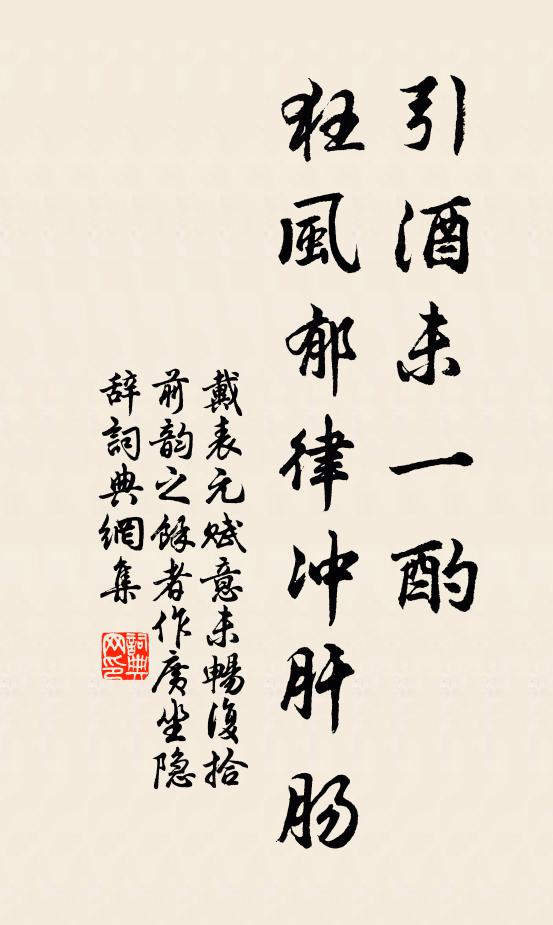 引酒未一酌
狂風郁律冲肝肠
戴表元赋意未暢復拾
前韵之餘者作廣坐隐
辞詞典網集
詞典
网印